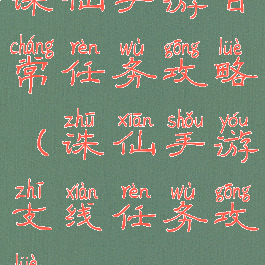 诛仙手游日
cháng rèn wù gōng lüè
常任务攻略
zhū xiān shǒu yóu
(诛仙手游
zhī xiàn rèn wù gōng
支线任务攻
lüè